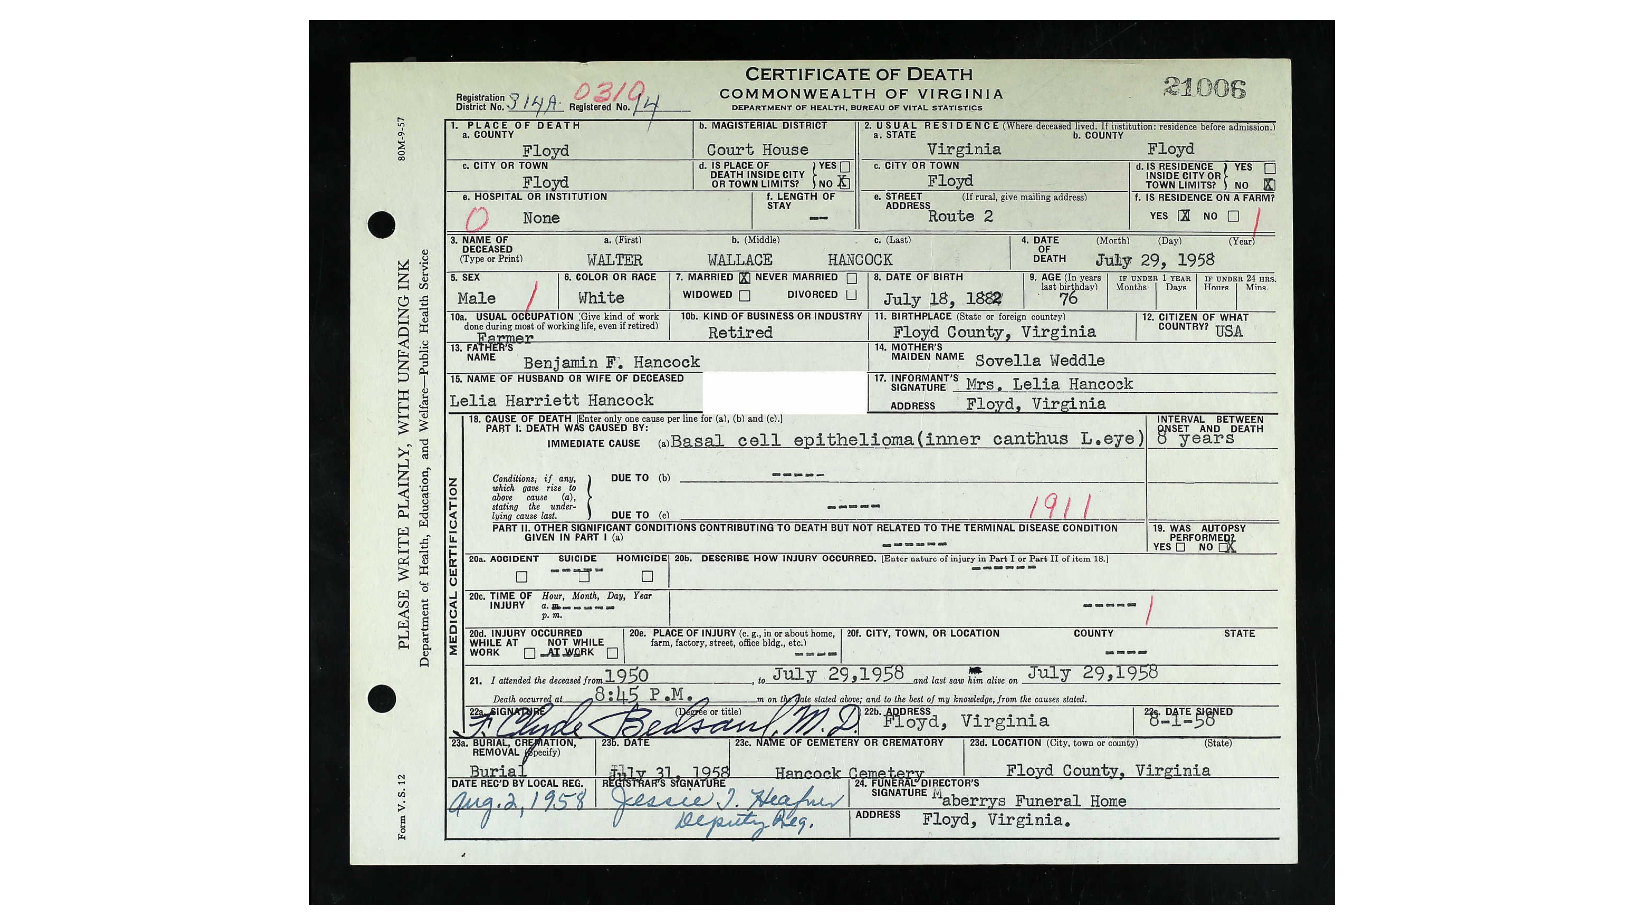 CERTIFICATE OF DEATH
COMMONWEALTH OF VIRGINIA
DEPARTMENT OF HEALTH, BUREAU OF VITAL STATISTICS
21006
Registration District No. 314A. Registered No. 94
0310
80M-9-57
PLEASE WRITE PLAINLY, WITH UNFADING INK
Department of Health, Education, and Welfare—Public Health Service
Form V. S. 12
1. PLACE OF DEATH
a. COUNTY
Floyd
b. MAGISTERIAL DISTRICT
Court House
2. USUAL RESIDENCE (Where deceased lived. If institution: residence before admission.)
a. STATE
Virginia
b. COUNTY
Floyd
c. CITY OR TOWN
Floyd
d. IS PLACE OF DEATH INSIDE CITY OR TOWN LIMITS? YES NO X
c. CITY OR TOWN
Floyd
d. IS RESIDENCE INSIDE CITY OR TOWN LIMITS? YES NO X
e. HOSPITAL OR INSTITUTION
0 None
f. LENGTH OF STAY
--
e. STREET ADDRESS (If rural, give mailing address)
Route 2
f. IS RESIDENCE ON A FARM?
YES X NO
1
3. NAME OF DECEASED (Type or Print)
a. (First) b. (Middle) c. (Last)
WALTER WALLACE HANCOCK
4. DATE OF DEATH (Month) (Day) (Year)
July 29, 1958
5. SEX
Male 1
6. COLOR OR RACE
White
7. MARRIED X NEVER MARRIED
WIDOWED DIVORCED
8. DATE OF BIRTH
July 18, 1882
9. AGE (In years last birthday)
76
IF UNDER 1 YEAR
Months Days
IF UNDER 24 HRS.
Hours Mins.
10a. USUAL OCCUPATION (Give kind of work done during most of working life, even if retired)
Farmer
10b. KIND OF BUSINESS OR INDUSTRY
Retired
11. BIRTHPLACE (State or foreign country)
Floyd County, Virginia
12. CITIZEN OF WHAT COUNTRY? USA
13. FATHER'S NAME
Benjamin F. Hancock
14. MOTHER'S MAIDEN NAME Sovella Weddle
15. NAME OF HUSBAND OR WIFE OF DECEASED
Lelia Harriett Hancock
17. INFORMANT'S SIGNATURE Mrs. Lelia Hancock
ADDRESS Floyd, Virginia
MEDICAL CERTIFICATION
18. CAUSE OF DEATH [Enter only one cause per line for (a), (b) and (c).]
PART I. DEATH WAS CAUSED BY:
IMMEDIATE CAUSE (a) Basal cell epithelioma(inner canthus L.eye)
INTERVAL BETWEEN ONSET AND DEATH
8 years
Conditions, if any, which gave rise to above cause (a), stating the underlying cause last.
DUE TO (b) -----
DUE TO (c) -----
1911
PART II. OTHER SIGNIFICANT CONDITIONS CONTRIBUTING TO DEATH BUT NOT RELATED TO THE TERMINAL DISEASE CONDITION GIVEN IN PART I (a)
------
19. WAS AUTOPSY PERFORMED?
YES NO X
20a. ACCIDENT SUICIDE HOMICIDE
-----
20b. DESCRIBE HOW INJURY OCCURRED. [Enter nature of injury in Part I or Part II of item 18.]
------
20c. TIME OF INJURY Hour, Month, Day, Year
a. m. -----
p. m.
----- 1
20d. INJURY OCCURRED
WHILE AT WORK NOT WHILE AT WORK
20e. PLACE OF INJURY (e. g., in or about home, farm, factory, street, office bldg., etc.)
----
20f. CITY, TOWN, OR LOCATION COUNTY STATE
----
21. I attended the deceased from 1950, to July 29,1958 and last saw him alive on July 29,1958
Death occurred at 8:45 P.M. m on the date stated above; and to the best of my knowledge, from the causes stated.
22a. SIGNATURE (Degree or title)
F. Clyde Bedsaul, M.D.
22b. ADDRESS
Floyd, Virginia
22c. DATE SIGNED
8-1-58
23a. BURIAL, CREMATION, REMOVAL (Specify)
Burial
23b. DATE
July 31, 1958
23c. NAME OF CEMETERY OR CREMATORY
Hancock Cemetery
23d. LOCATION (City, town or county) (State)
Floyd County, Virginia
DATE REC'D BY LOCAL REG.
Aug. 2, 1958
REGISTRAR'S SIGNATURE
Jessie T. Heafner
Deputy Reg.
24. FUNERAL DIRECTOR'S SIGNATURE Maberrys Funeral Home
ADDRESS Floyd, Virginia.